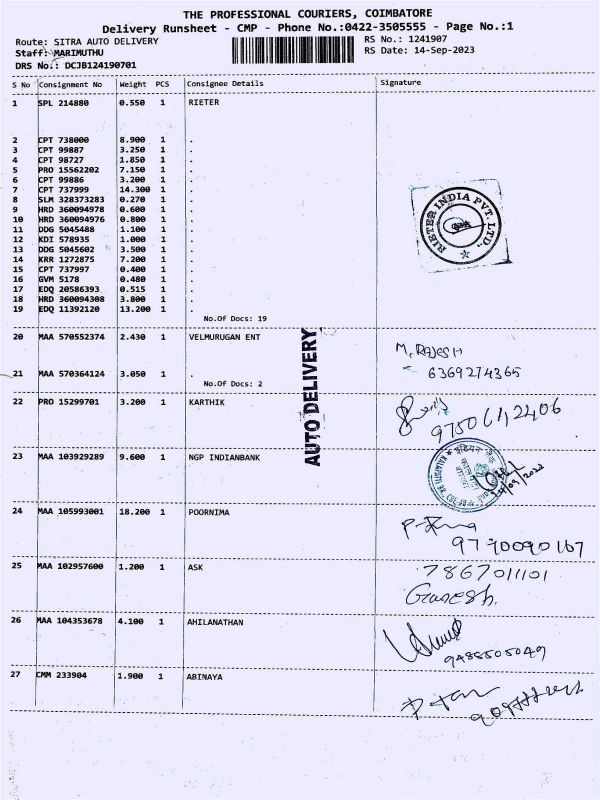 THE PROFESSIONAL COURIERS, COIMBATORE
Delivery Runsheet - CMP - Phone No.:0422-3505555 - Page No.:1
Route: SITRA AUTO DELIVERY
RS No.: 1241907
Staff: MARIMUTHU
RS Date: 14-Sep-2023
DRS No.: DCJB124190701
S No Consignment No Weight PCS Consignee Details Signature
1 SPL 214880 0.550 1 RIETER
2 CPT 738000 8.900 1 .
3 CPT 99887 3.250 1 .
4 CPT 98727 1.850 1 .
5 PRO 15562202 7.150 1 .
6 CPT 99886 3.200 1 .
7 CPT 737999 14.300 1 .
8 SLM 328373283 0.270 1 .
9 HRD 360094978 0.600 1 .
10 HRD 360094976 0.800 1 .
11 DDG 5045488 1.100 1 .
12 KDI 578935 1.000 1 .
13 DDG 5045602 3.500 1 .
14 KRR 1272875 7.200 1 .
15 CPT 737997 0.400 1 .
16 GVM 5178 0.480 1 .
17 EDQ 20586393 0.515 1 .
18 HRD 360094308 3.800 1 .
19 EDQ 11392120 13.200 1 .
No.Of Docs: 19
RIETER INDIA PVT. LTD.,
20 MAA 570552374 2.430 1 VELMURUGAN ENT
M. RAJESH
21 MAA 570364124 3.050 1 .
6369274365
No.Of Docs: 2
AUTO DELIVERY
22 PRO 15299701 3.200 1 KARTHIK
23 MAA 103929289 9.600 1 NGP INDIANBANK
24 MAA 105993001 18.200 1 POORNIMA
9790090167
25 MAA 102957600 1.200 1 ASK
7867011101
Ganesh.
26 MAA 104353678 4.100 1 AHILANATHAN
9488505049
27 CMM 233904 1.900 1 ABINAYA